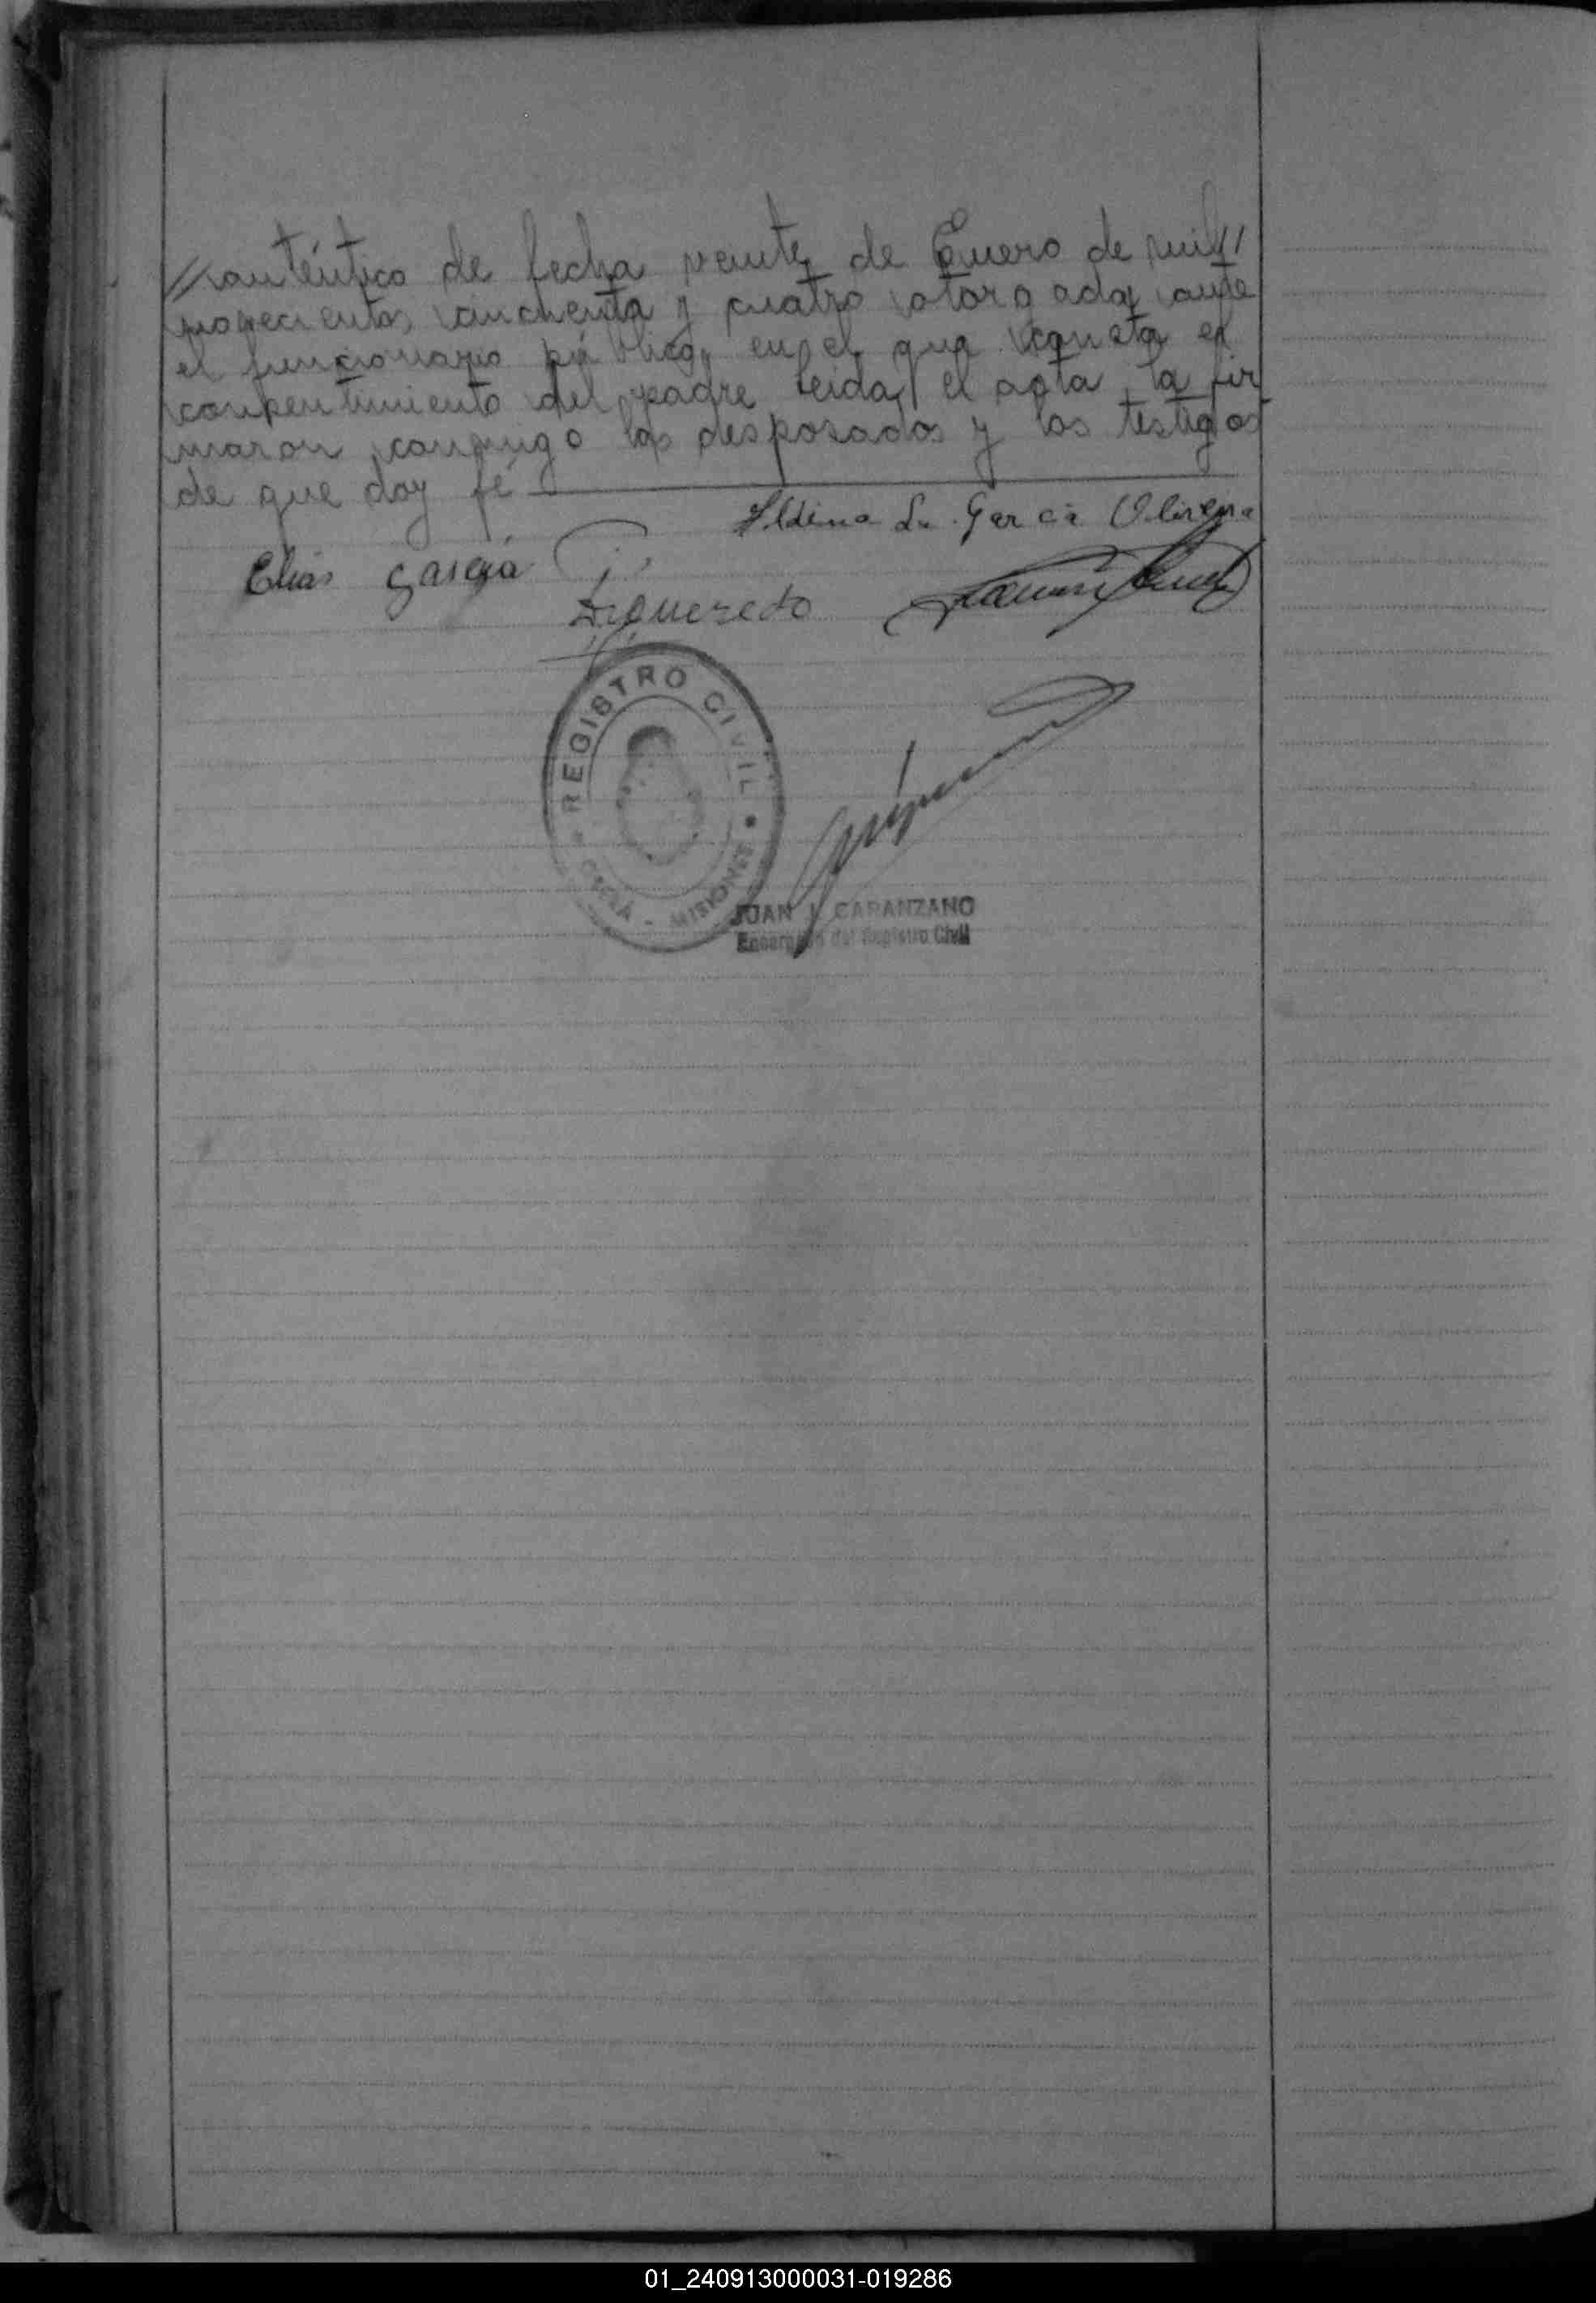 //auténtico de fecha veinte de Enero de mil//
novecientos cincuenta y cuatro otorgada ante
el funcionario público, en el que consta el
consentimiento del padre leida el acta, la fir
maron conmigo los desposados y los testigos
de que doy fé
Ildema L. Garcia Olivera
Elias Garcia
Figueredo
REGISTRO CIVIL
OBERÁ - MISIONES
JUAN J. CARANZANO
Encargado del Registro Civil
01_240913000031-019286